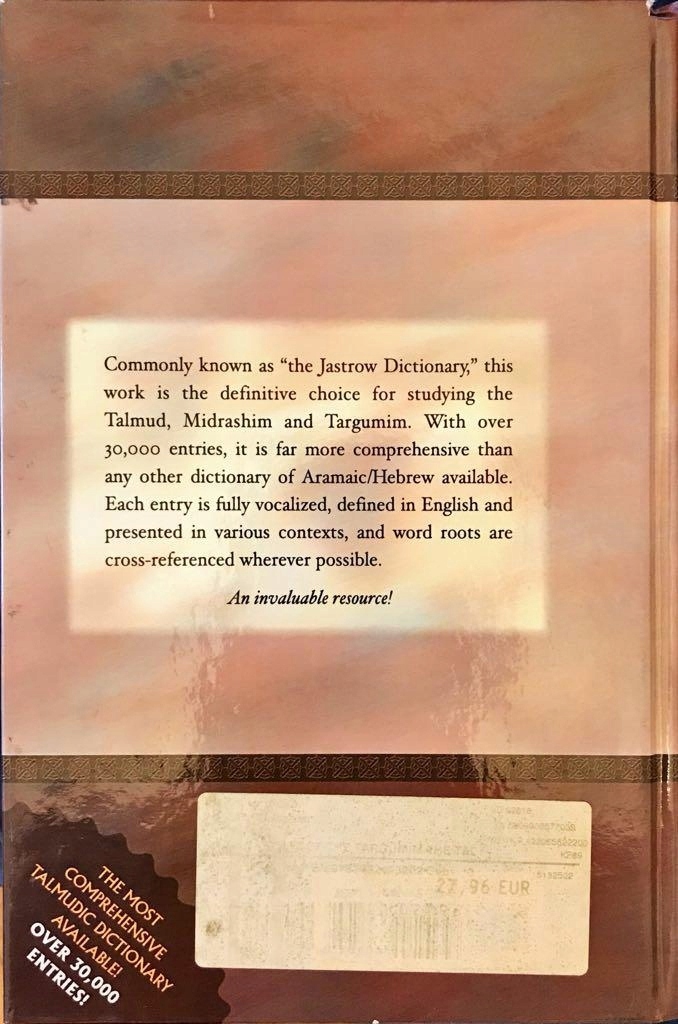 Commonly known as “the Jastrow Dictionary,” this
work is the definitive choice for studying the
Talmud, Midrashim and Targumim. With over
30,000 entries, it is far more comprehensive than
any other dictionary of Aramaic/Hebrew available.
Each entry is fully vocalized, defined in English and
presented in various contexts, and word roots are
cross-referenced wherever possible.
An invaluable resource!
THE MOST
COMPREHENSIVE
TALMUDIC DICTIONARY
AVAILABLE!
OVER 30,000
ENTRIES!
K289
5132502
27,96 EUR